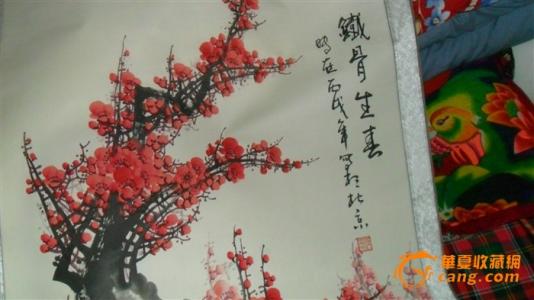 鐵骨生春
時在丙戌年寫於北京
華夏收藏網
cang.com